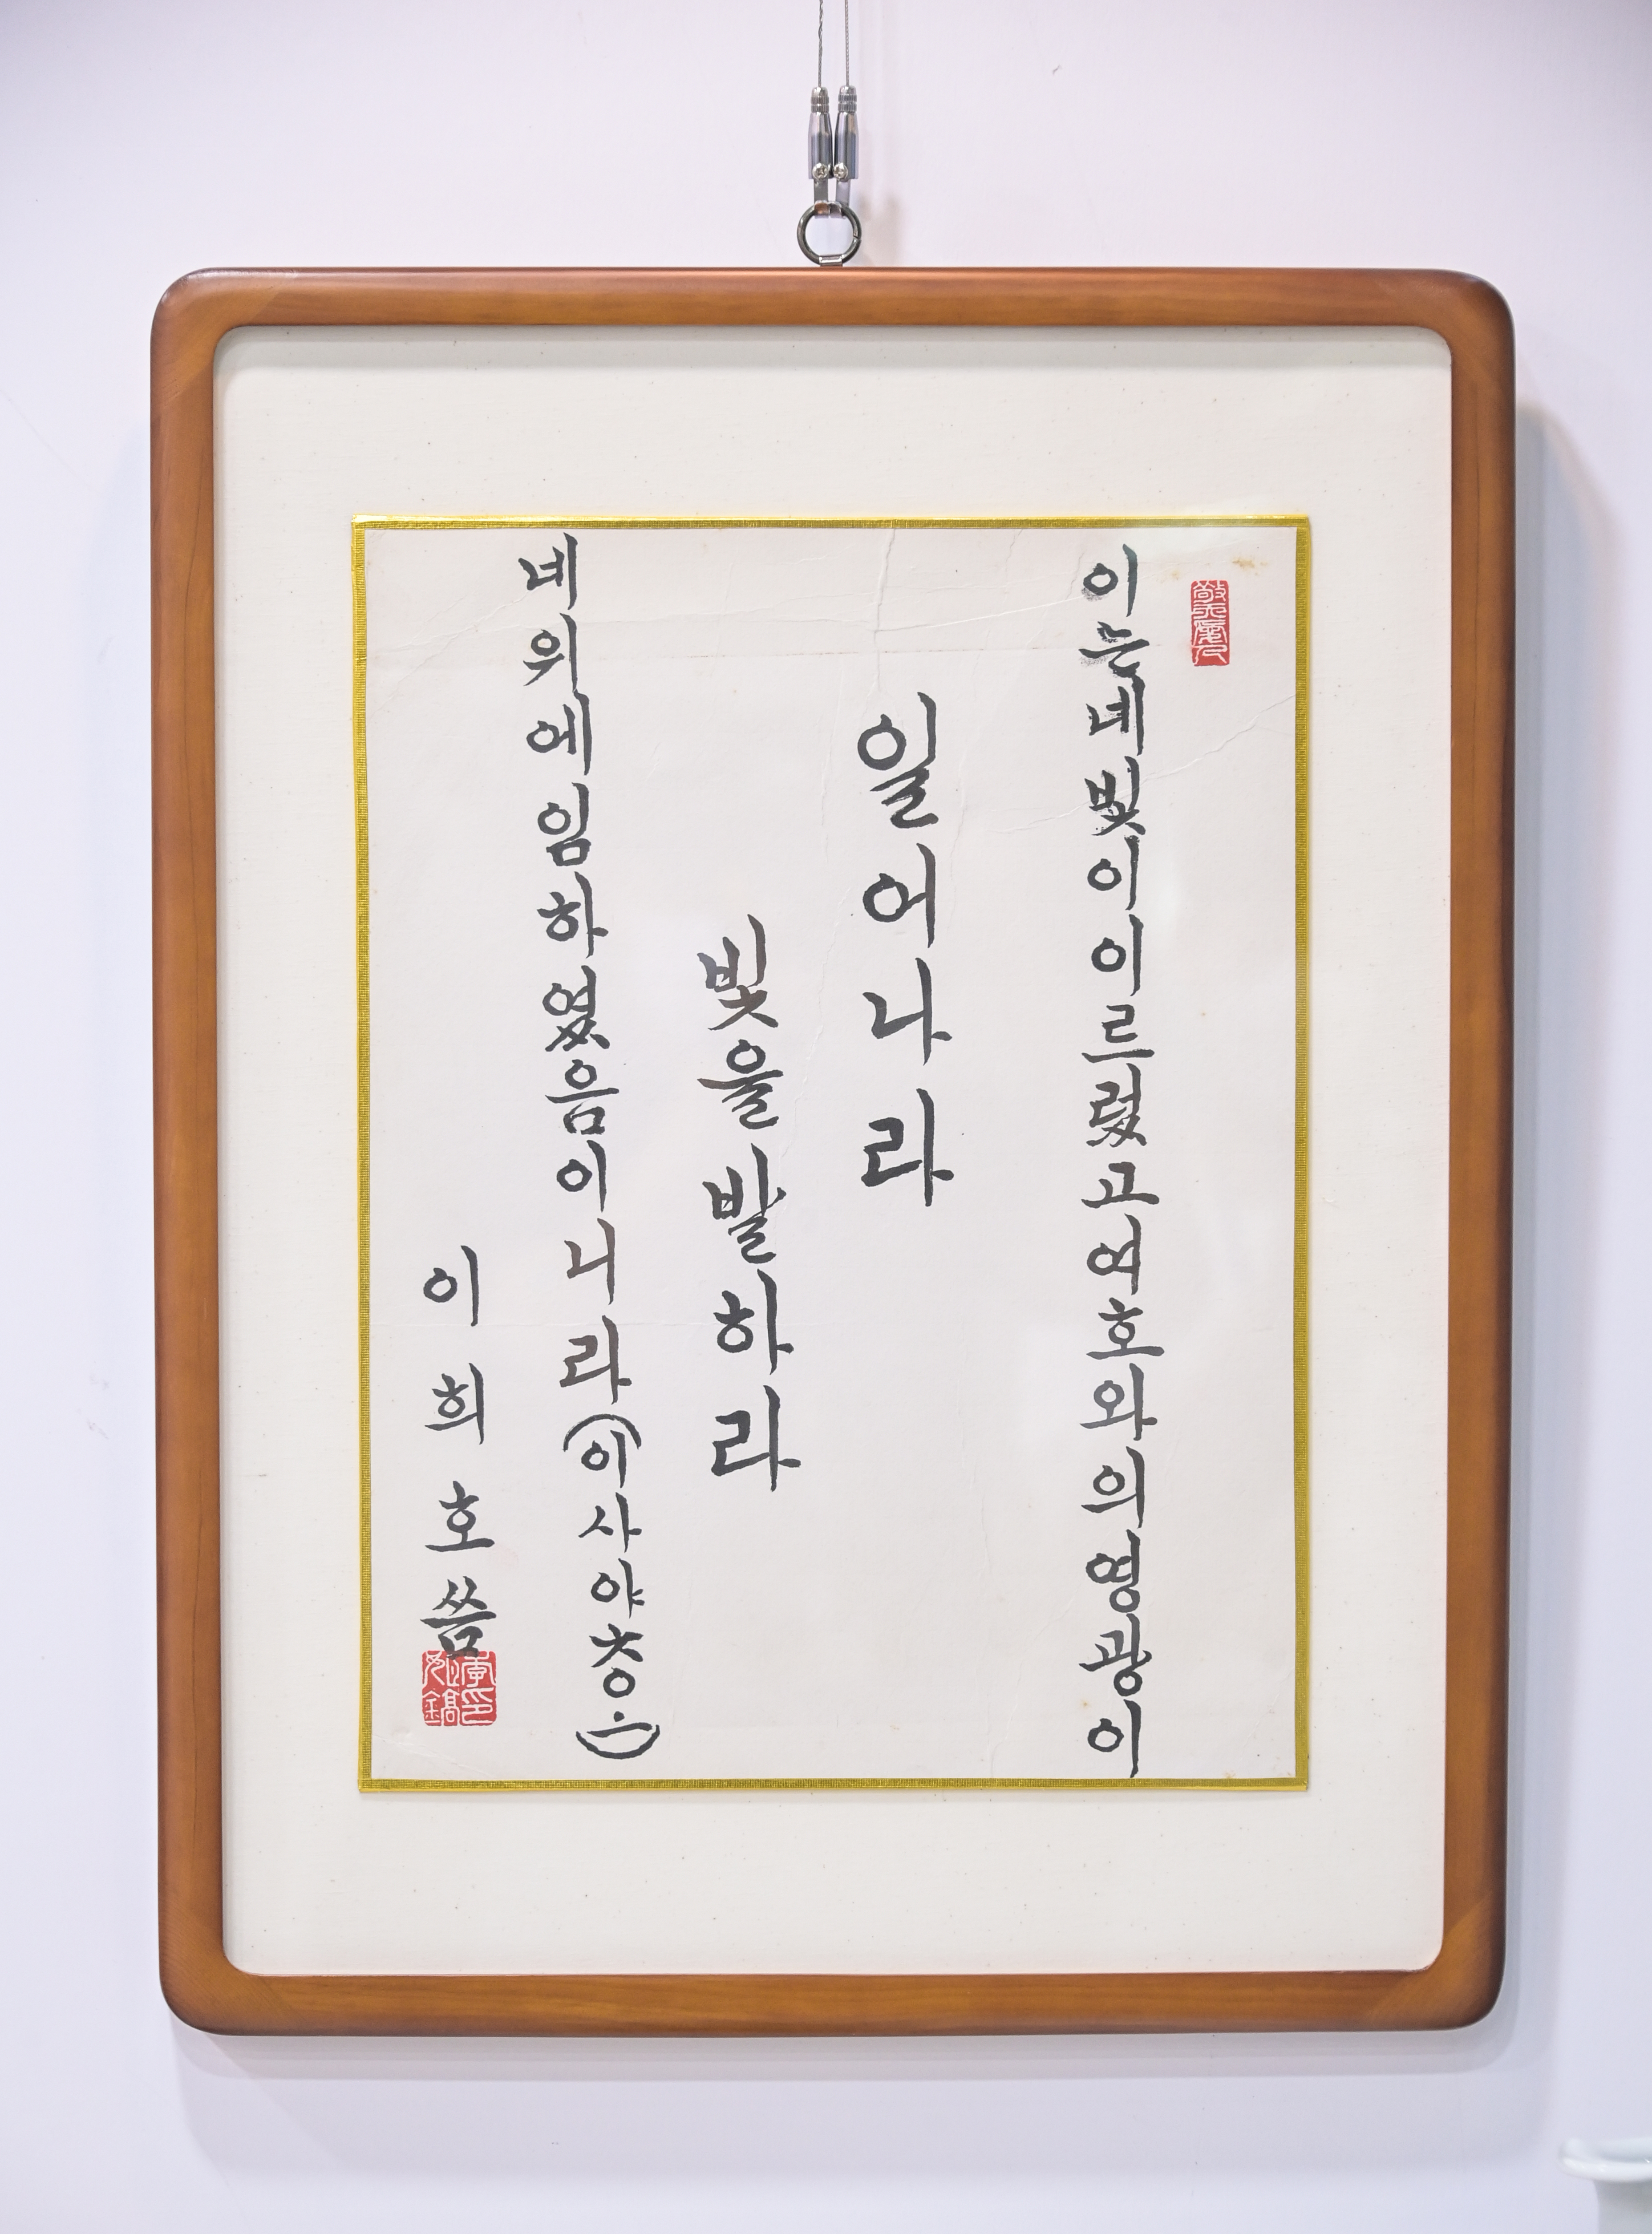 敬天愛人
이는네빛이이르렀고여호와의영광이
일어나라
빛을발하라
네위에임하였음이니라(이사야六○·一)
이희호씀
李姬鎬印